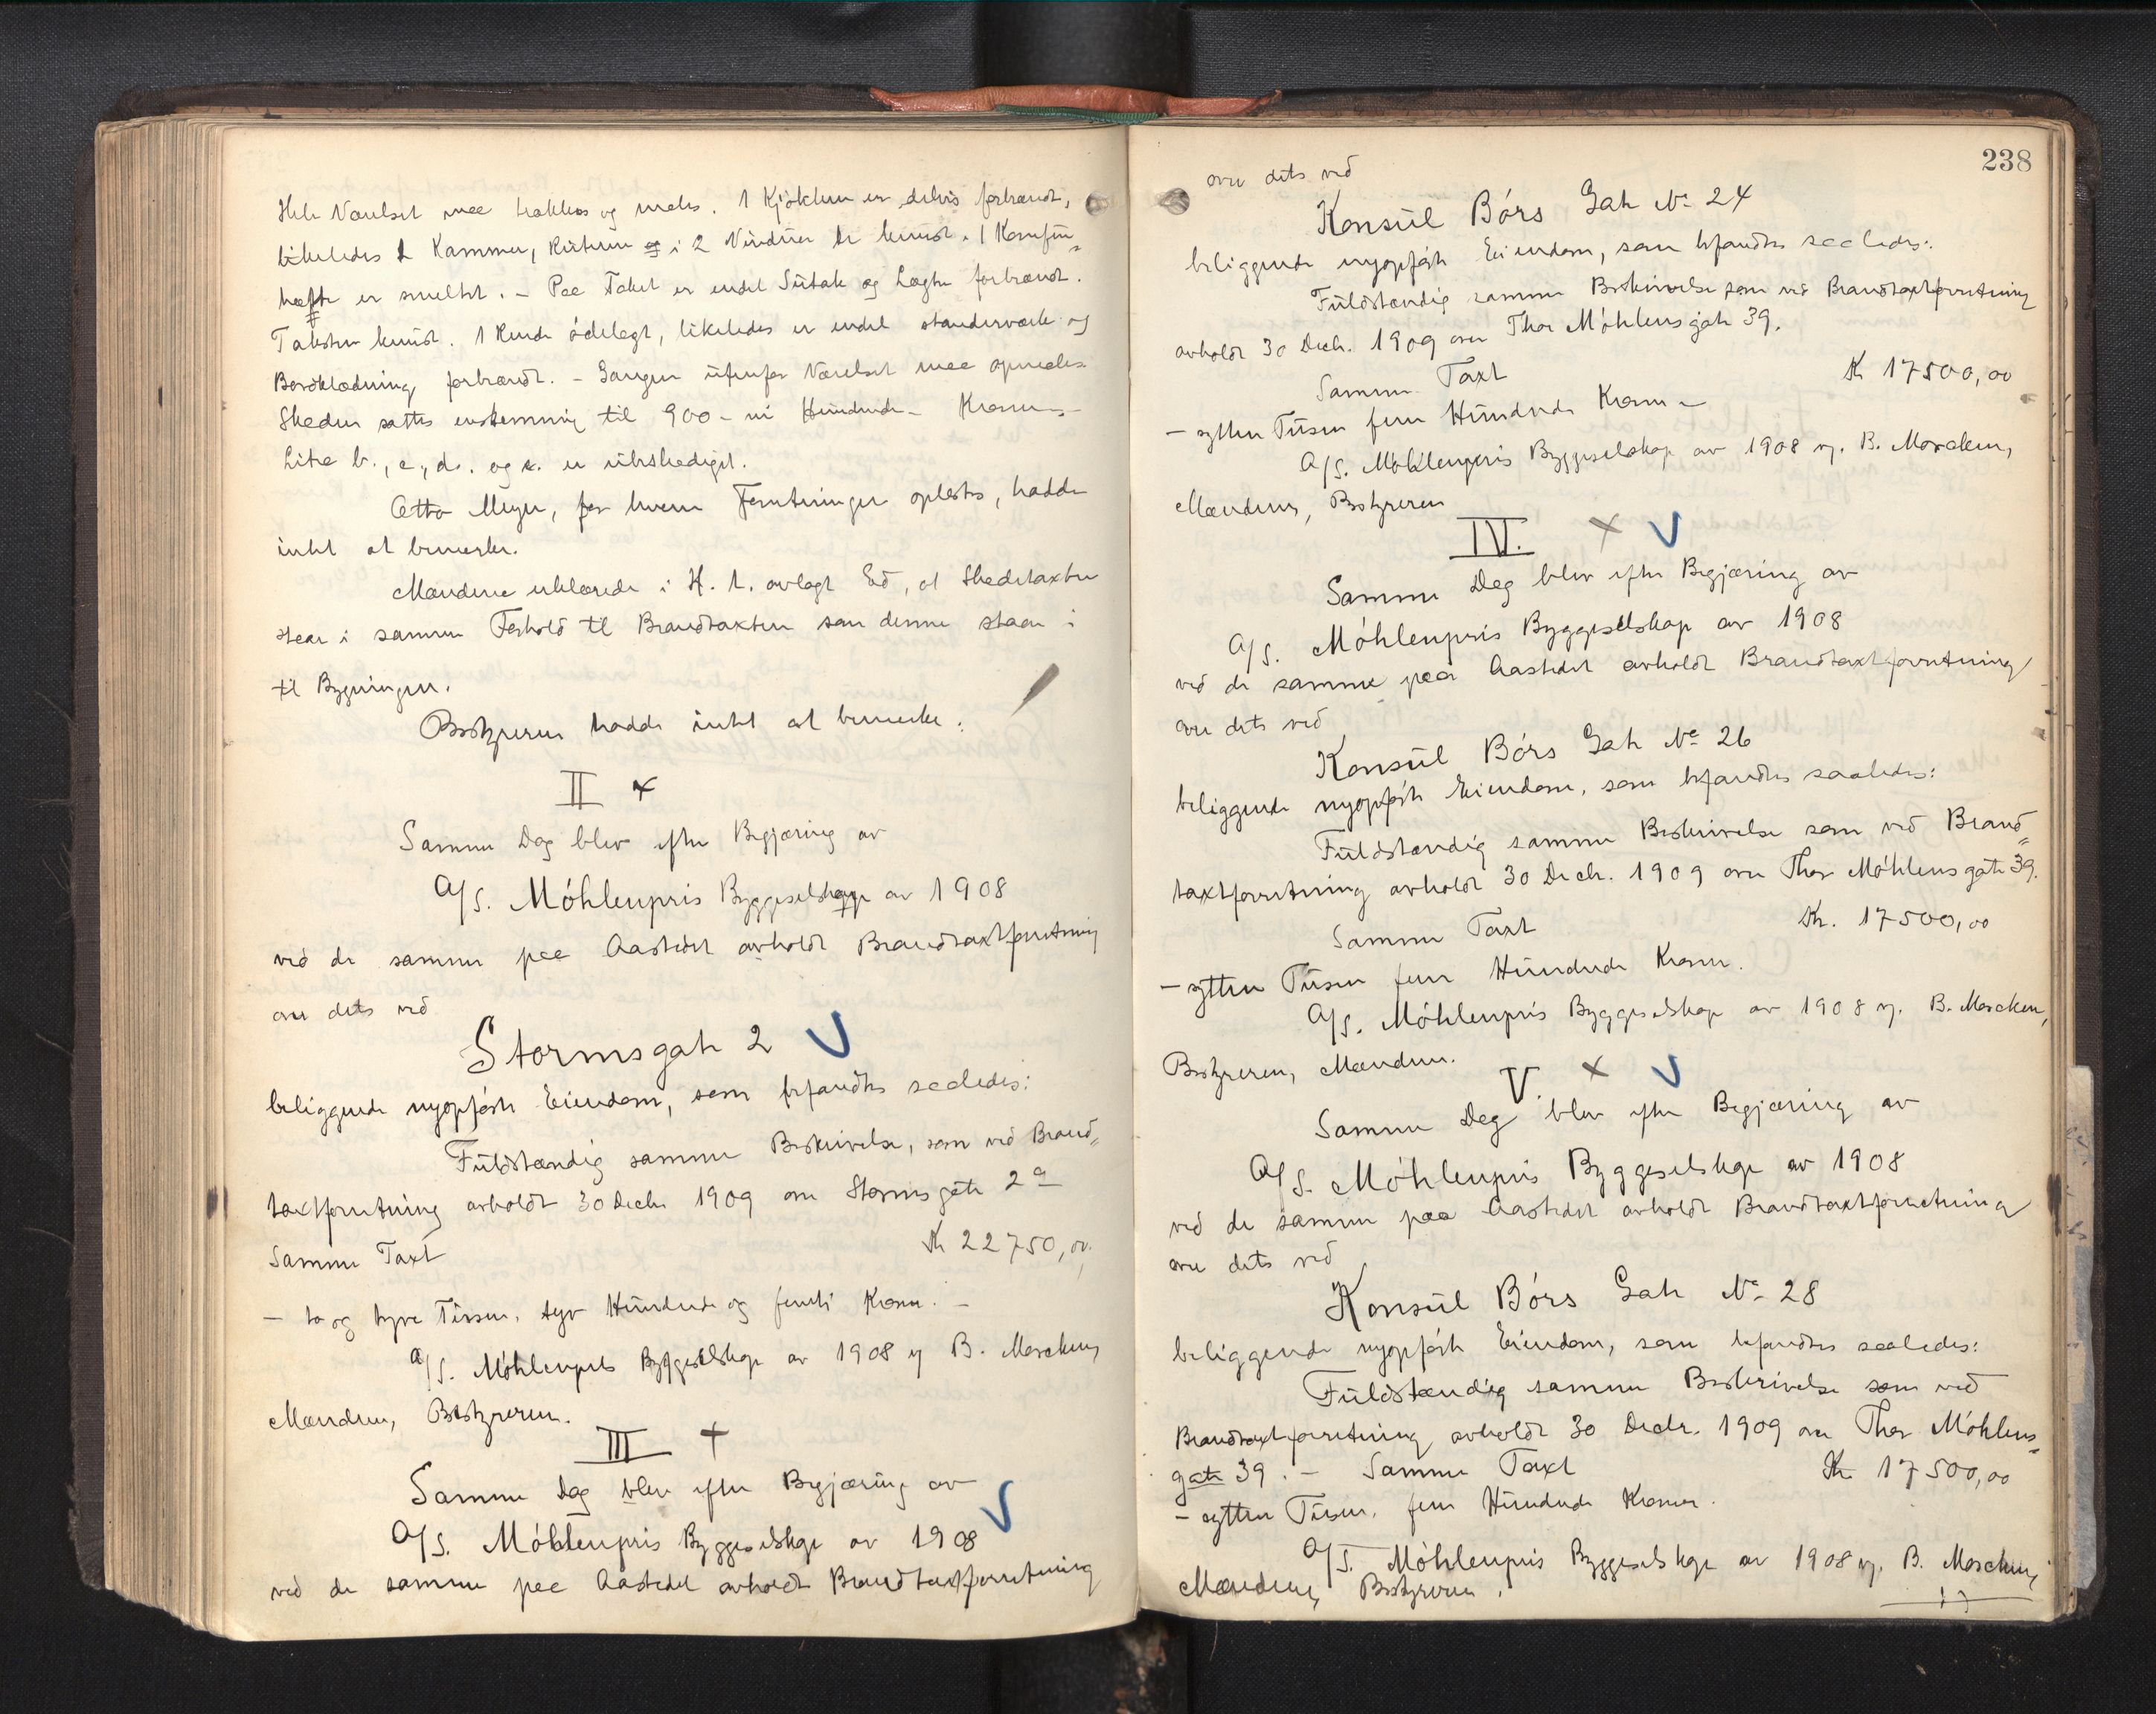 Hele Værelset maa trækkes og males. 1 Kjøkken er delvis forbrændt,
likeledes 1 Kammer, Ruterne i 2 Vinduer er knust. 1 Komfür-
hætte er smeltet. – Paa Taket er endel Sütak og Lægter forbrændt.
Taksten knüst. 1 Rende ödelagt, likeledes er endel standerværk og
Bordklædning forbrændt. – Gangen ütenfor Værelset maa opmales.
Skaden sattes enstemmig til 900 – ni Hündrede – Kroner –
Litra b., c., d. og e. er übeskadiget.
Otto Meyer, for hvem Forretningen oplæstes, hadde
intet at bemerke.
Mændene erklærede i H. t. avlagt Ed, at Skadetaxten
staar i samme Forhold til Brandtaxten som denne staar i
til Bygningen.
Bestyreren hadde intet at bemerke.
II x
Samme Dag blev efter Begjæring av
A/S. Möhlenpris Byggeselskap av 1908
ved de samme paa Aastedet avholdt Brandtaxtforretning
over dets ved
Stormsgate 2 V
beliggende nyopförte Eiendom, som befandtes saaledes:
Füldstændig samme Beskrivelse, som ved Brand-
taxtforretning avholdt 30 Decbr 1909 over Stormsgate 2a
Samme Taxt Kr 22750,00.
– to og tyve Tüsen, syv Hündrede og femti Kroner. –
A/S. Möhlenpris Byggeselskap av 1908 v/ B. Morcken,
Mændene, Bestyreren.
III +
Samme Dag blev efter Begjæring av
A/S. Möhlenpris Byggeselskap av 1908 V
ved de samme paa Aastedet avholdt Brandtaxtforretning
238
over dets ved
Konsül Börs Gate No 24
beliggende nyopförte Eiendom, som befandtes saaledes:
Füldstændig samme Beskrivelse som ved Brandtaxtforretning
avholdt 30 Decb. 1909 over Thor Möhlensgate 39.
Samme Taxt Kr 17500,00
– sytten Tüsen fem Hündrede Kroner –
A/S. Möhlenpris Byggeselskap av 1908 v/. B. Morcken,
Mændene, Bestyreren
IV. x V
Samme Dag blev efter Begjæring av
A/S. Möhlenpris Byggeselskap av 1908
ved de samme paa Aastedet avholdt Brandtaxtforretning
over dets ved
Konsül Börs Gate No 26
beliggende nyopförte Eiendom, som befandtes saaledes:
Füldstændig samme Beskrivelse som ved Brand-
taxtforretning avholdt 30 Decb. 1909 over Thor Möhlens gate 39.
Samme Taxt Kr. 17500,00
– sytten Tüsen fem Hündrede Kroner.
A/S. Möhlenpris Byggeselskap av 1908 v/. B. Morcken,
Bestyreren, Mændene.
V. x V
Samme Dag blev efter Begjæring av
A/S. Möhlenpris Byggeselskap av 1908
ved de samme paa Aastedet avholdt Brandtaxtforretning
over dets ved
Konsül Börs Gate No 28
beliggende nyopförte Eiendom, som befandtes saaledes:
Füldstændig samme Beskrivelse som ved
Brandtaxtforretning avholdt 30 Decbr. 1909 over Thor Möhlens-
gate 39. – Samme Taxt Kr 17500,00
– sytten Tüsen, fem Hündrede Kroner.
A/S. Möhlenpris Byggeselskap av 1908 v/. B. Morcken,
Mændene, Bestyreren.